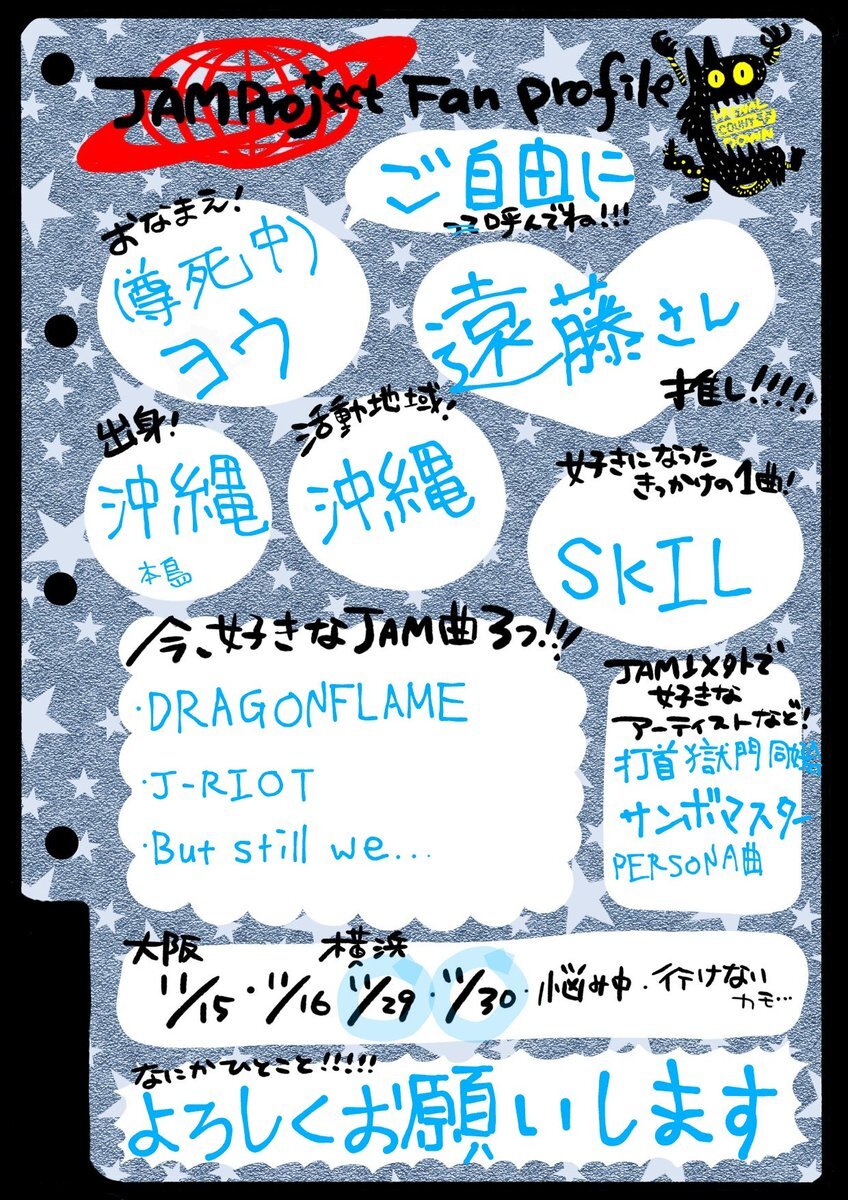 JAM Project Fan profile
ご自由に
って呼んでね!!!
おなまえ!
(尊死中)
ヨウ
遠藤さん
推し!!!!!
出身!
沖縄
本島
活動地域!
沖縄
好きになった
きっかけの1曲!
SKILL
今、好きなJAM曲3つ!!!
・DRAGONFLAME
・J-RIOT
・But still we...
JAM以外で
好きな
アーティストなど!
打首獄門同好会
サンボマスター
PERSONA曲
大阪 横浜
11/15・11/16 11/29・11/30・悩み中・行けない
カモ…
なにかひとこと!!!!!
よろしくお願いします